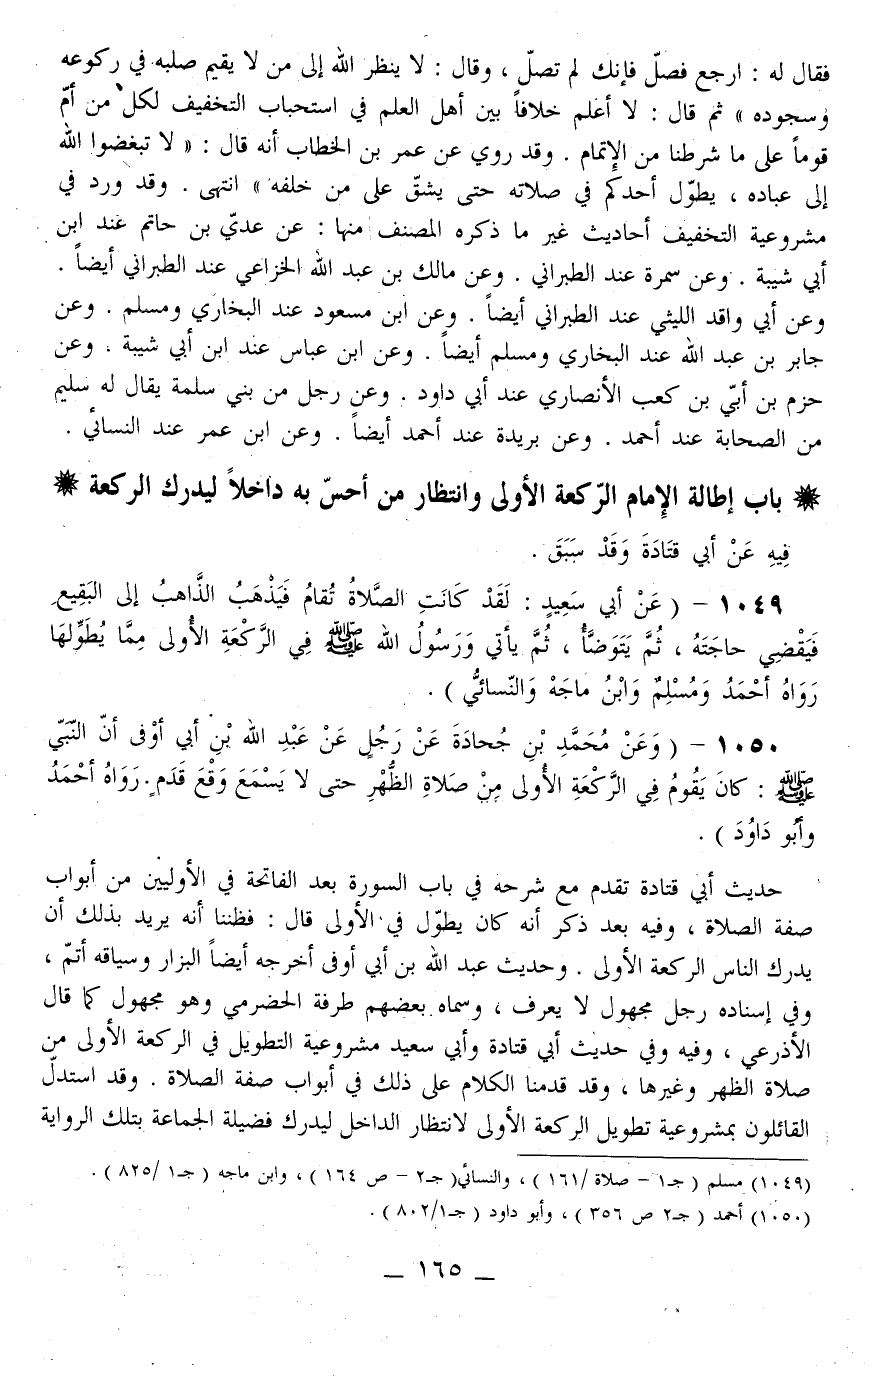 فقال له : ارجع فصلّ فإنك لم تصلّ ، وقال : لا ينظر الله إلى من لا يقيم صلبه في ركوعه
وسجوده » ثم قال : لا أعلم خلافاً بين أهل العلم في استحباب التخفيف لكل من أمّ
قوماً على ما شرطنا من الإتمام . وقد روي عن عمر بن الخطاب أنه قال : « لا تبغضوا الله
إلى عباده ، يطوّل أحدكم في صلاته حتى يشقّ على من خلفه » انتهى . وقد ورد في
مشروعية التخفيف أحاديث غير ما ذكره المصنف منها : عن عديّ بن حاتم عند ابن
أبي شيبة . وعن سمرة عند الطبراني . وعن مالك بن عبد الله الخزاعي عند الطبراني أيضاً .
وعن أبي واقد الليثي عند الطبراني أيضاً . وعن ابن مسعود عند البخاري ومسلم . وعن
جابر بن عبد الله عند البخاري ومسلم أيضاً . وعن ابن عباس عند ابن أبي شيبة . وعن
حزم بن أبيّ بن كعب الأنصاري عند أبي داود . وعن رجل من بني سلمة يقال له سليم
من الصحابة عند أحمد . وعن بريدة عند أحمد أيضاً . وعن ابن عمر عند النسائي .
❋ باب إطالة الإمام الرّكعة الأولى وانتظار من أحسّ به داخلاً ليدرك الركعة ❋
فِيهِ عَنْ أبي قَتَادَةَ وَقَدْ سَبَقَ .
١٠٤٩ – ( عَنْ أبي سَعِيدٍ : لَقَدْ كَانَتِ الصَّلاةُ تُقامُ فَيَذْهَبُ الذَّاهبُ إلى البَقِيعِ
فَيَقْضِي حاجَتَهُ ، ثُمَّ يَتَوَضَّأُ ، ثُمَّ يأتي وَرَسُولُ الله ﷺ فِي الرَّكْعَةِ الأُولى مِمَّا يُطَوِّلهَا
رَوَاهُ أحْمَدُ وَمُسْلِمٌ وَابْنُ ماجَهْ وَالنَّسائيُّ ) .
١٠٥٠ – ( وَعَنْ مُحَمَّدِ بْنِ جُحادَةَ عَنْ رَجُلٍ عَنْ عَبْدِ الله بْنِ أبي أوْفى أنّ النَّبيّ
ﷺ : كانَ يَقُومُ فِي الرَّكْعَةِ الأُولى مِنْ صَلاةِ الظُّهْرِ حتى لا يَسْمَعَ وَقْعَ قَدَمٍ . رَوَاهُ أحْمَدُ
وأبُو دَاوُدَ ) .
حديث أبي قتادة تقدم مع شرحه في باب السورة بعد الفاتحة في الأوليين من أبواب
صفة الصلاة ، وفيه بعد ذكر أنه كان يطوّل في الأولى قال : فظننا أنه يريد بذلك أن
يدرك الناس الركعة الأولى . وحديث عبد الله بن أبي أوفى أخرجه أيضاً البزار وسياقه أتمّ ،
وفي إسناده رجل مجهول لا يعرف ، وسماه بعضهم طرفة الحضرمي وهو مجهول كما قال
الأذرعي ، وفيه وفي حديث أبي قتادة وأبي سعيد مشروعية التطويل في الركعة الأولى من
صلاة الظهر وغيرها ، وقد قدمنا الكلام على ذلك في أبواب صفة الصلاة . وقد استدلّ
القائلون بمشروعية تطويل الركعة الأولى لانتظار الداخل ليدرك فضيلة الجماعة بتلك الرواية
(١٠٤٩) مسلم ( جـ١ – صلاة /١٦١ ) ، والنسائي( جـ٢ – ص ١٦٤ ) ، وابن ماجه ( جـ١ /٨٢٥ ) .
(١٠٥٠) أحمد ( جـ٢ ص ٣٥٦ ) ، وأبو داود ( جـ٨٠٢/١ ) .
— ١٦٥ —